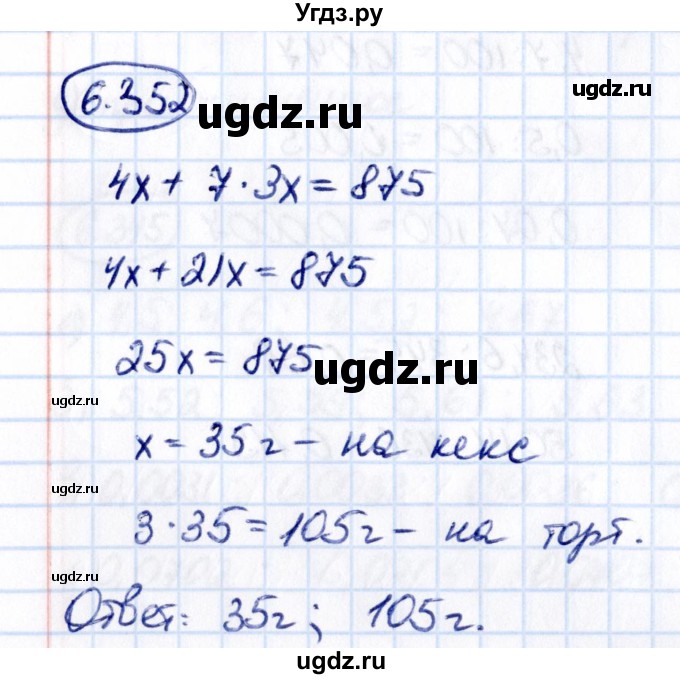 Угдз.ру
6.352
ugdz.ru
ugdz.ru
4x + 7·3x = 875
4x + 21x = 875
25x = 875
ugdz.ru
ugdz.ru
x = 35г – на кекс
ugdz.ru
3·35 = 105г – на торт.
ugdz.ru
Ответ: 35г; 105г.
ugdz.ru